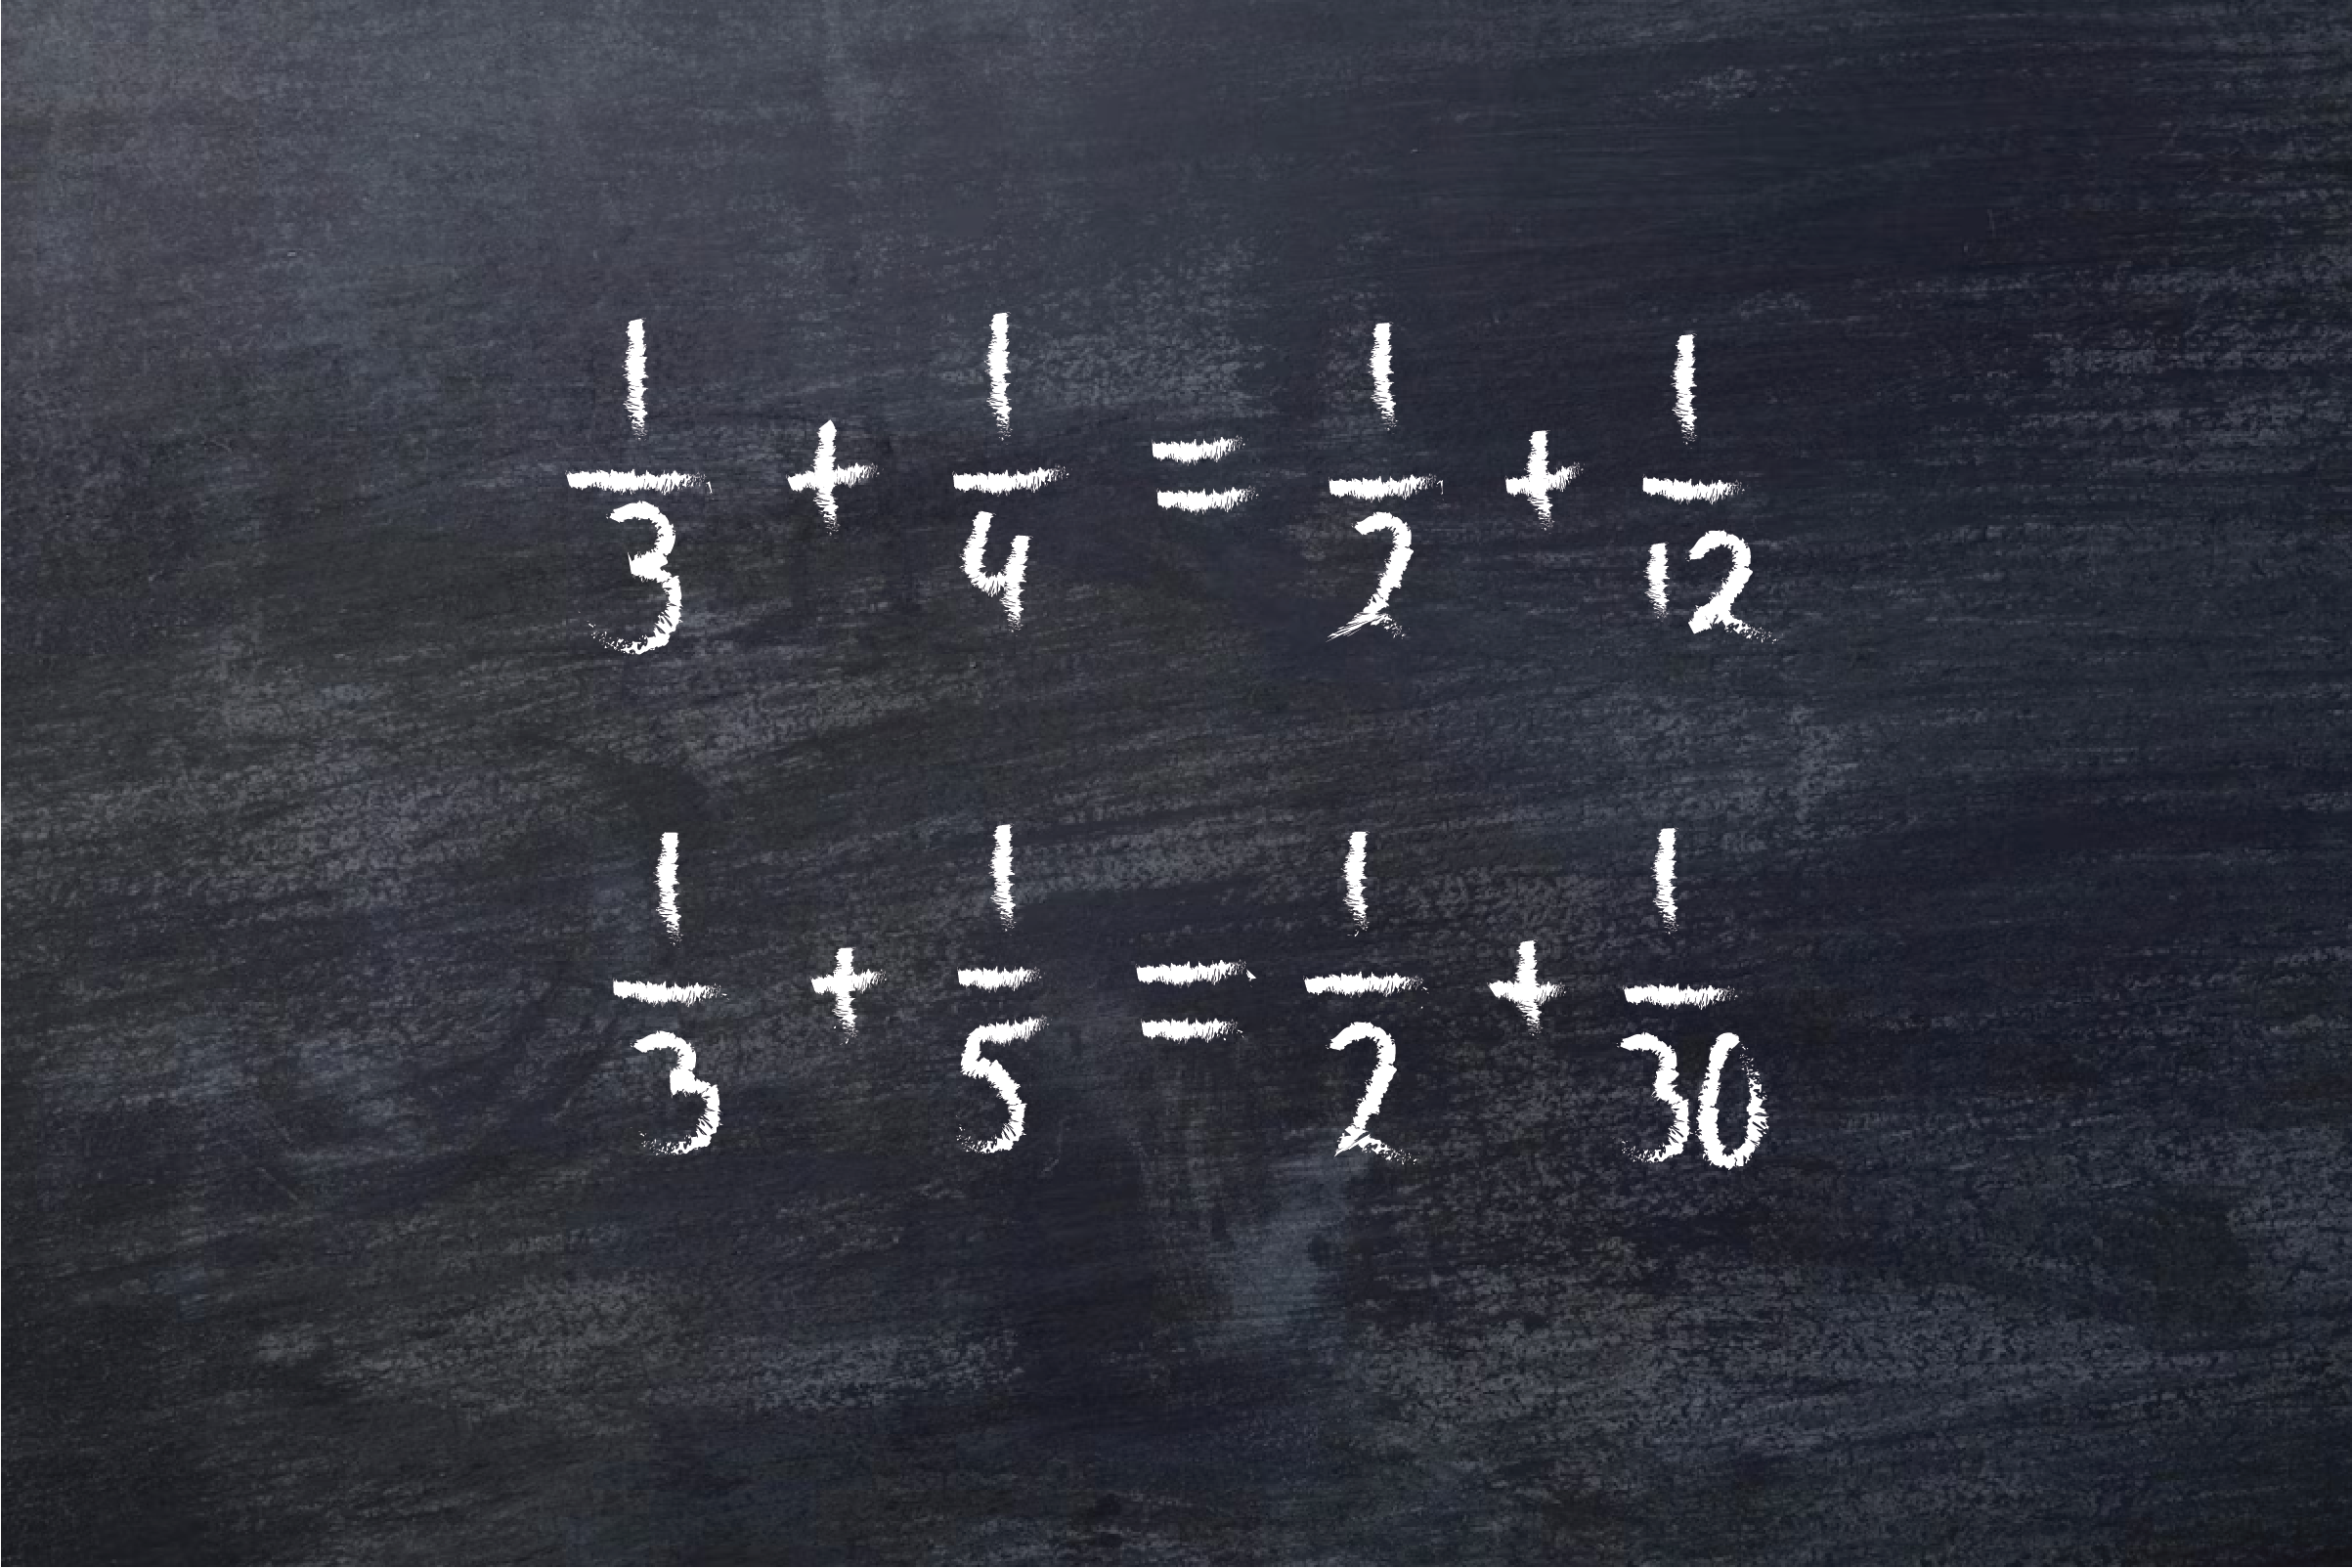 1/3 + 1/4 = 1/2 + 1/12
1/3 + 1/5 = 1/2 + 1/30